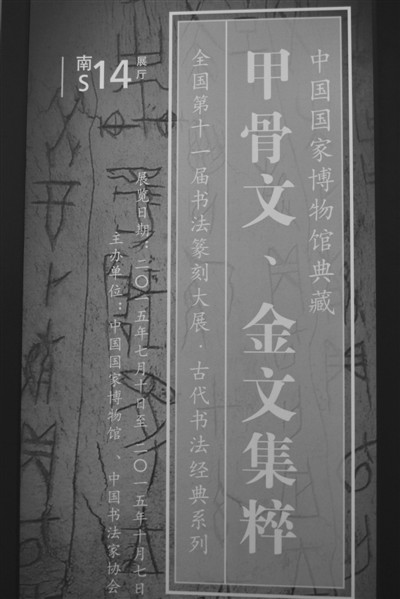 中国国家博物馆典藏
甲骨文、金文集粹
全国第十一届书法篆刻大展·古代书法经典系列
南S14展厅
展览日期：二〇一五年七月十日至二〇一五年十月七日
主办单位：中国国家博物馆、中国书法家协会